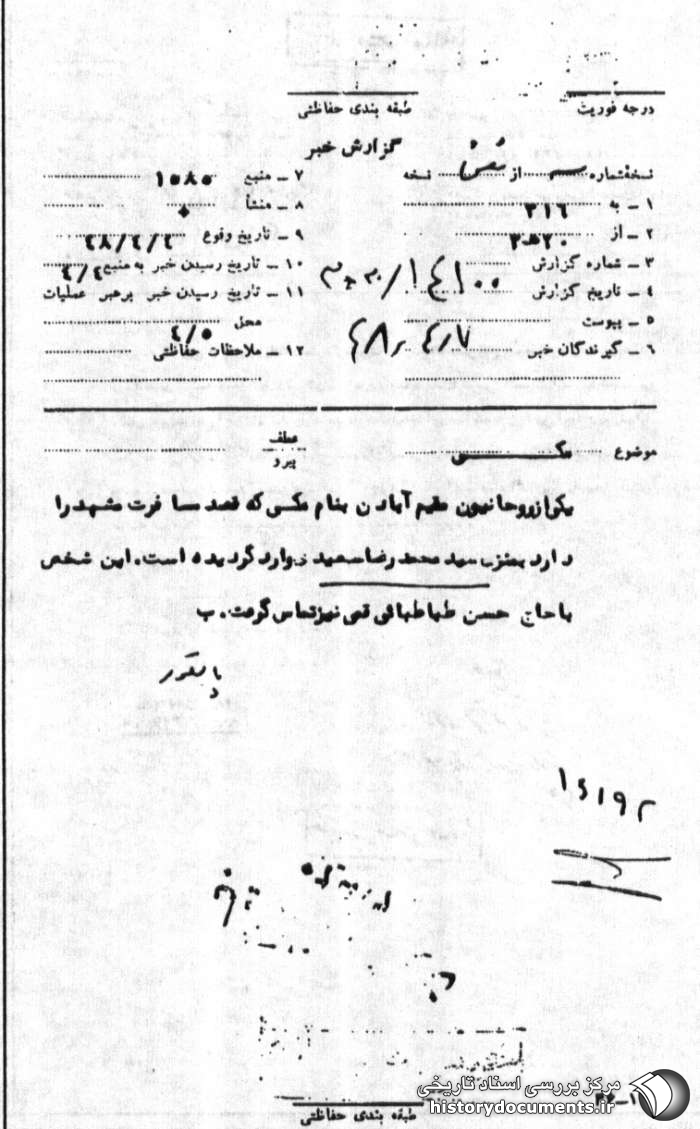 درجه فوریت
طبقه بندی حفاظتی
گزارش خبر
نسخه شماره سه از شش نسخه
۱ - به ۳۱۶
۲ - از ۲۰ ه ۳
۳ - شماره گزارش
۴ - تاریخ گزارش
۵ - پیوست
۶ - گیرندگان خبر
۴۸٫۴٫۷
۷ - منبع ۱۰۸۰
۸ - منشأ
۹ - تاریخ وقوع ۴۸/۴/۴
۱۰ - تاریخ رسیدن خبر به منبع ۴/۴
۱۱ - تاریخ رسیدن خبر برهبر عملیات
محل ۴/۵
۱۲ - ملاحظات حفاظتی
موضوع مکی
عطف
پیرو
یکی از روحانیون مقیم آبادان بنام مکی که قصد مسافرت مشهد را
دارد بمنزل سید محمد رضا سعیدی وارد گردیده است. این شخص
با حاج حسن طباطبائی قمی نیز تماس گرفت. ب
۱۴۱۹۲
طبقه بندی حفاظتی
مرکز بررسی اسناد تاریخی
historydocuments.ir